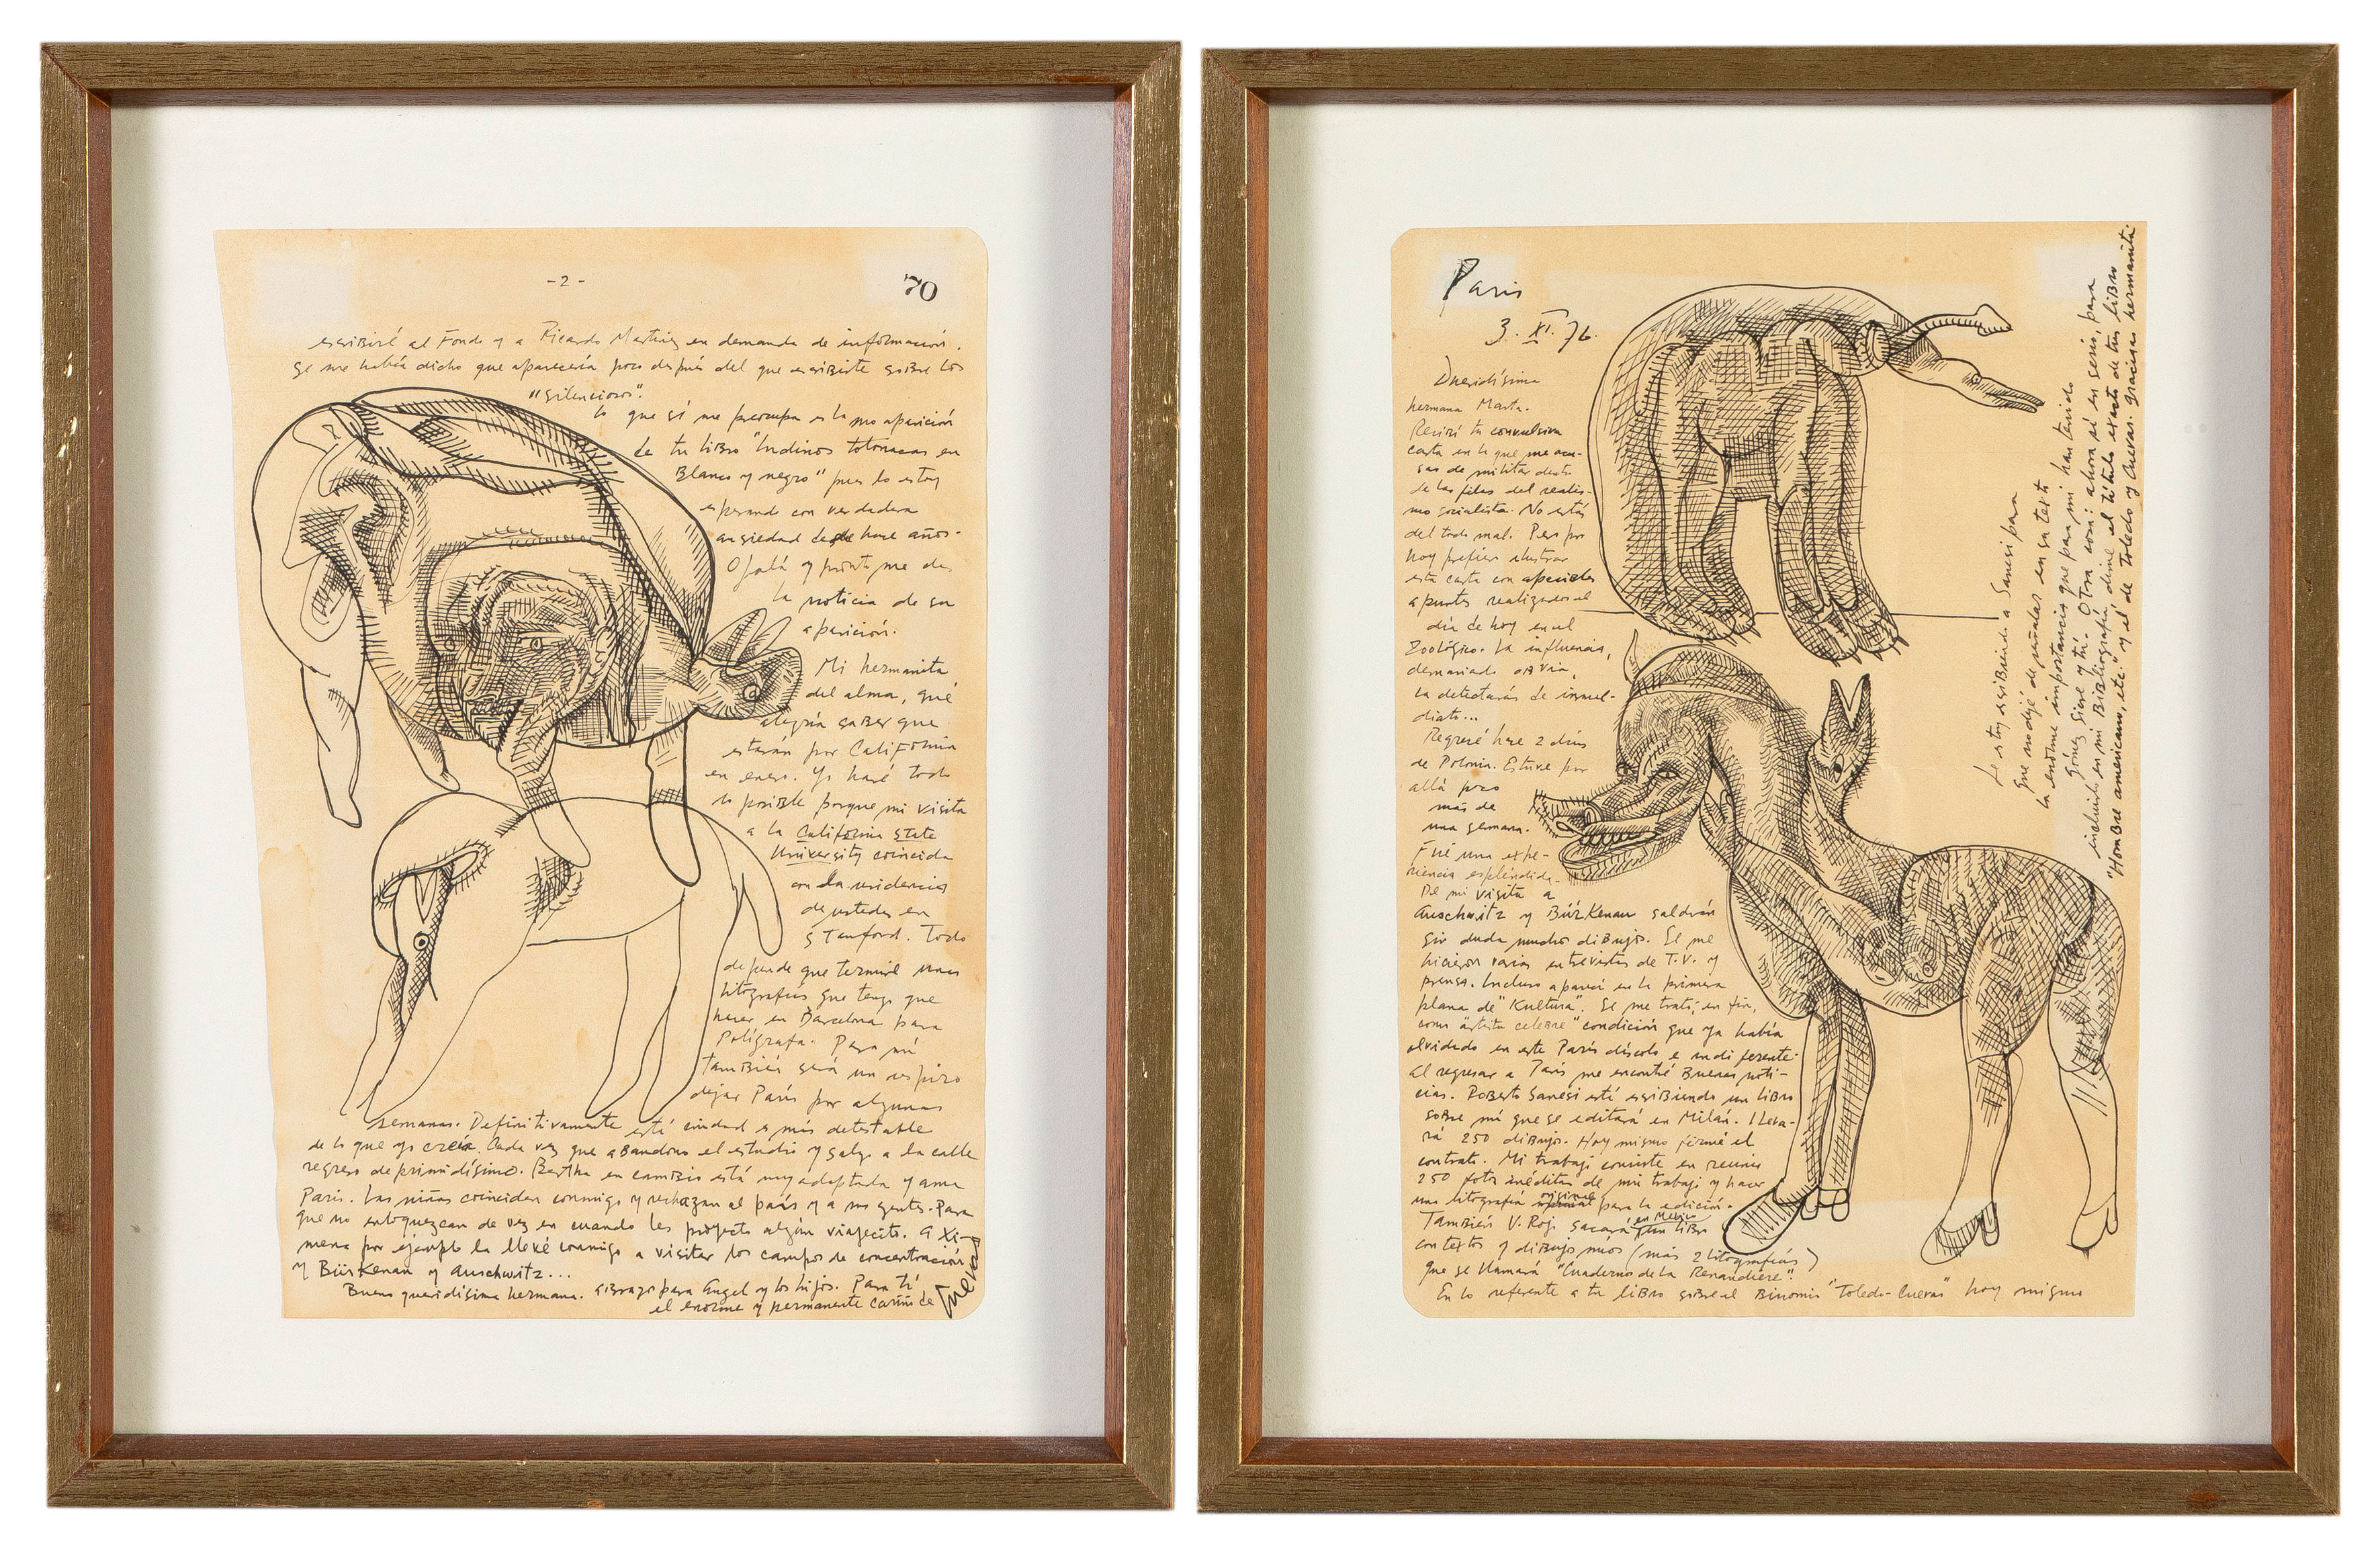 Paris
3. XI. 76.
Queridísima
hermana Marta.
Recibí tu convulsiva
carta en la que me acu-
sas de militar dentro
de las filas del realis-
mo socialista. No estás
del todo mal. Pero por
hoy prefiero ilustrar
esta carta con apacibles
apuntes realizados el
día de hoy en el
Zoológico. La influencia,
demasiado obvia,
la detectarás de inme-
diato...
Regresé hace 2 días
de Polonia. Estuve por
allá poco
más de
una semana.
Fué una expe-
riencia espléndida.
De mi visita a
Auschwitz y Bürkenau saldrán
sin duda muchos dibujos. Se me
hicieron varias entrevistas de T.V. y
prensa. Incluso aparecí en la primera
plana de "Kultura". Se me trató, en fin,
como "artista celebre" condición que ya había
olvidado en este París díscolo e indiferente.
Al regresar a París me encontré buenas noti-
cias. Roberto Sanesi está escribiendo un libro
sobre mí que se editará en Milán. Lleva-
rá 250 dibujos. Hoy mismo firmé el
contrato. Mi trabajo consiste en reunir
250 fotos inéditas de mi trabajo y hacer
una litografía original para la edición.
También V. Rojo sacará en México un libro
con textos y dibujos míos (más 2 litografías)
que se llamará "Cuaderno de la Renaudière".
En lo referente a tu libro sobre el Binomio "Toledo-Cuevas" hoy mismo
Le estoy escribiendo a Sanesi para
que no deje de señalar en su texto
la enorme importancia que para mí han tenido
Gómez Sicre y tú. Otra cosa: ahora sí en serio, para
incluirlo en mi bibliografía dime el título exacto de tus libro
"Hombre americano, etc." y el de Toledo y Cuevas. Gracias hermanita
-2-
70
escribiré al Fondo y a Ricardo Martínez en demanda de información.
Se me había dicho que aparecería poco después del que escribiste sobre los
"silenciosos".
Lo que sí me preocupa es la no aparición
de tu libro "Indinos totonacas en
Blanco y negro" pues lo estoy
esperando con verdadera
ansiedad desde hace años.
Ojalá y pronto me des
la noticia de su
aparición.
Mi hermanita
del alma, qué
alegría saber que
estarán por California
en enero. Yo haré todo
lo posible porque mi visita
a la California State
University coincida
con la residencia
de ustedes en
Stanford. Todo
depende que termine unas
litografías que tengo que
hacer en Barcelona para
Polígrafa. Para mí
también será un respiro
dejar París por algunas
semanas. Definitivamente esta ciudad es más detestable
de lo que yo creía. Cada vez que abandono el estudio y salgo a la calle
regreso deprimidísimo. Bertha en cambio está muy adaptada y ama
París. Las niñas coinciden conmigo y rechazan al país y a sus gentes. Para
que no enloquezcan de vez en cuando les proyecto algún viajecito. A Xi-
mena por ejemplo la llevé conmigo a visitar los campos de concentración
y Bürkenau y Auschwitz...
Bueno queridísima hermana. Abrazo para Angel y los hijos. Para tí
el enorme y permanente cariño de